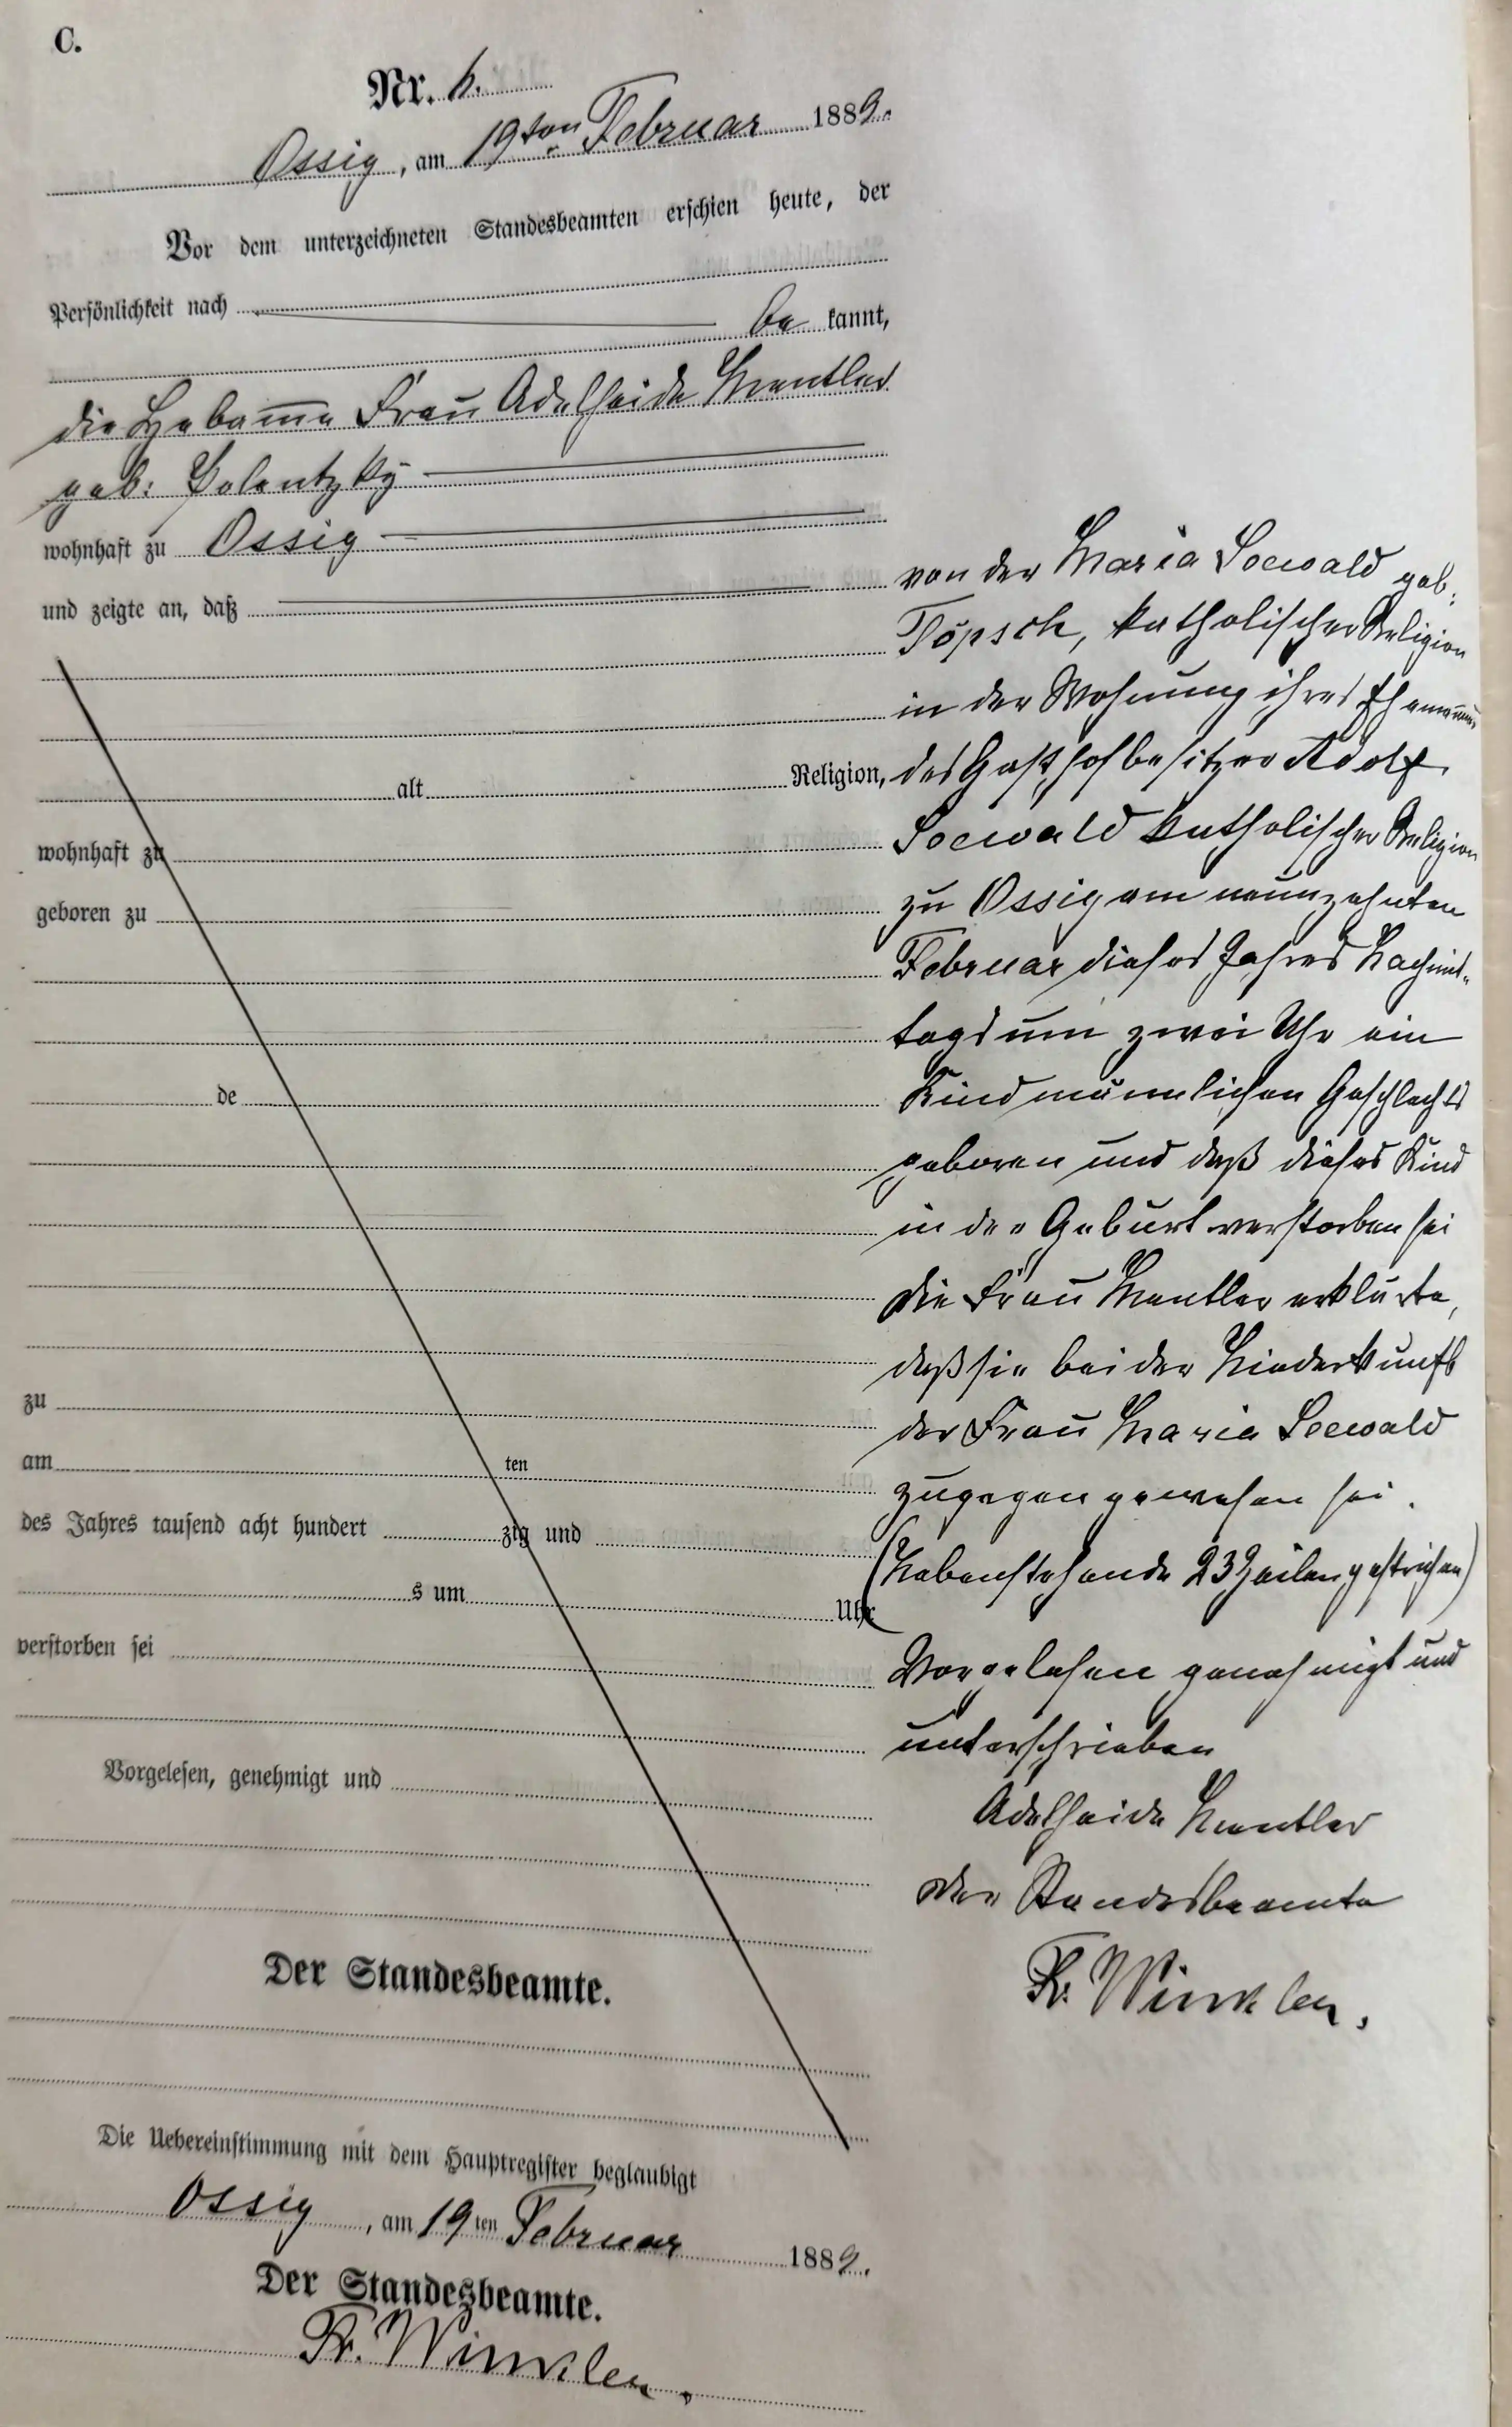 C.
Nr. 6.
Ossig, am 19ten Februar 1889.
Vor dem unterzeichneten Standesbeamten erschien heute, der
Persönlichkeit nach
be kannt,
die Hebamme Frau Adelheide Mentler
geb: Polentzky
wohnhaft zu Ossig
und zeigte an, daß
alt Religion,
wohnhaft zu
geboren zu
de
zu
am ten
des Jahres tausend acht hundert zig und
s um Uhr
verstorben sei
Vorgelesen, genehmigt und
Der Standesbeamte.
von der Maria Seewald geb:
Töpsch, katholischer Religion
in der Wohnung ihres Ehemannes
des Gasthofbesitzer Adolf
Seewald katholischer Religion
zu Ossig am neunzehnten
Februar dieses Jahres Nachmit-
tags um zwei Uhr ein
Kind männlichen Geschlechts
geboren und daß dieses Kind
in der Geburt verstorben sei
Die Frau Mentler erklärte,
daß sie bei der Niederkunft
der Frau Maria Seewald
zugegen gewesen sei.
(Nebenstehende 23 Zeilen gestrichen)
Vorgelesen genehmigt und
unterschrieben
Adelheide Mentler
Der Standesbeamte
Fr. Winkler.
Die Uebereinstimmung mit dem Hauptregister beglaubigt
Ossig, am 19ten Februar 1889.
Der Standesbeamte.
Fr. Winkler.